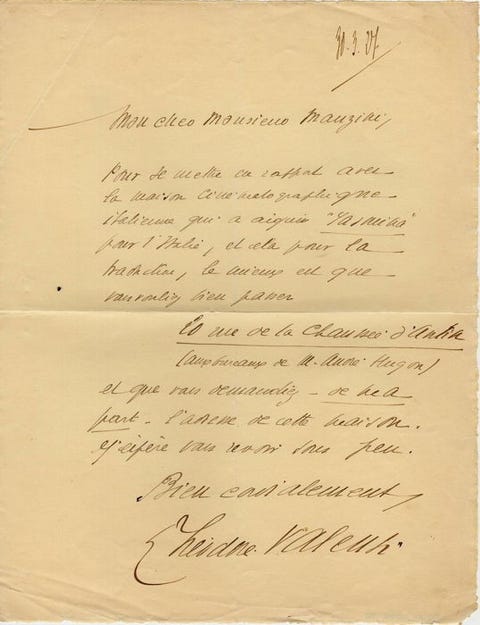 30.3.27
Mon cher Monsieur Manzini,
Pour se mettre en rapport avec
la maison Cinématographique
italienne qui a acquis "Yasmina"
pour l'Italie, et cela pour la
traduction, le mieux est que
vous vouliez bien passer
rue de la Chaussée d'Antin
(aux bureaux de M. André Hugon)
et que vous demandiez - de ma
part - l'adresse de cette maison.
J'espère vous revoir sous peu.
Bien cordialement,
Théodore Valensi